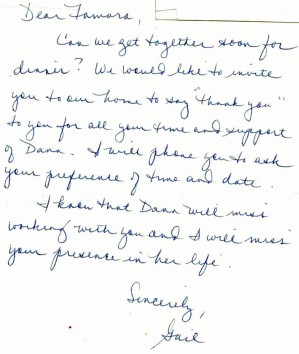 Dear Tamara,
Can we get together soon for
dinner? We would like to invite
you to our home to say "thank you"
to you for all your time and support
of Dana. I will phone you to ask
your preference of time and date.
I know that Dana will miss
working with you and I will miss
your presence in her life.
Sincerely,
Gail